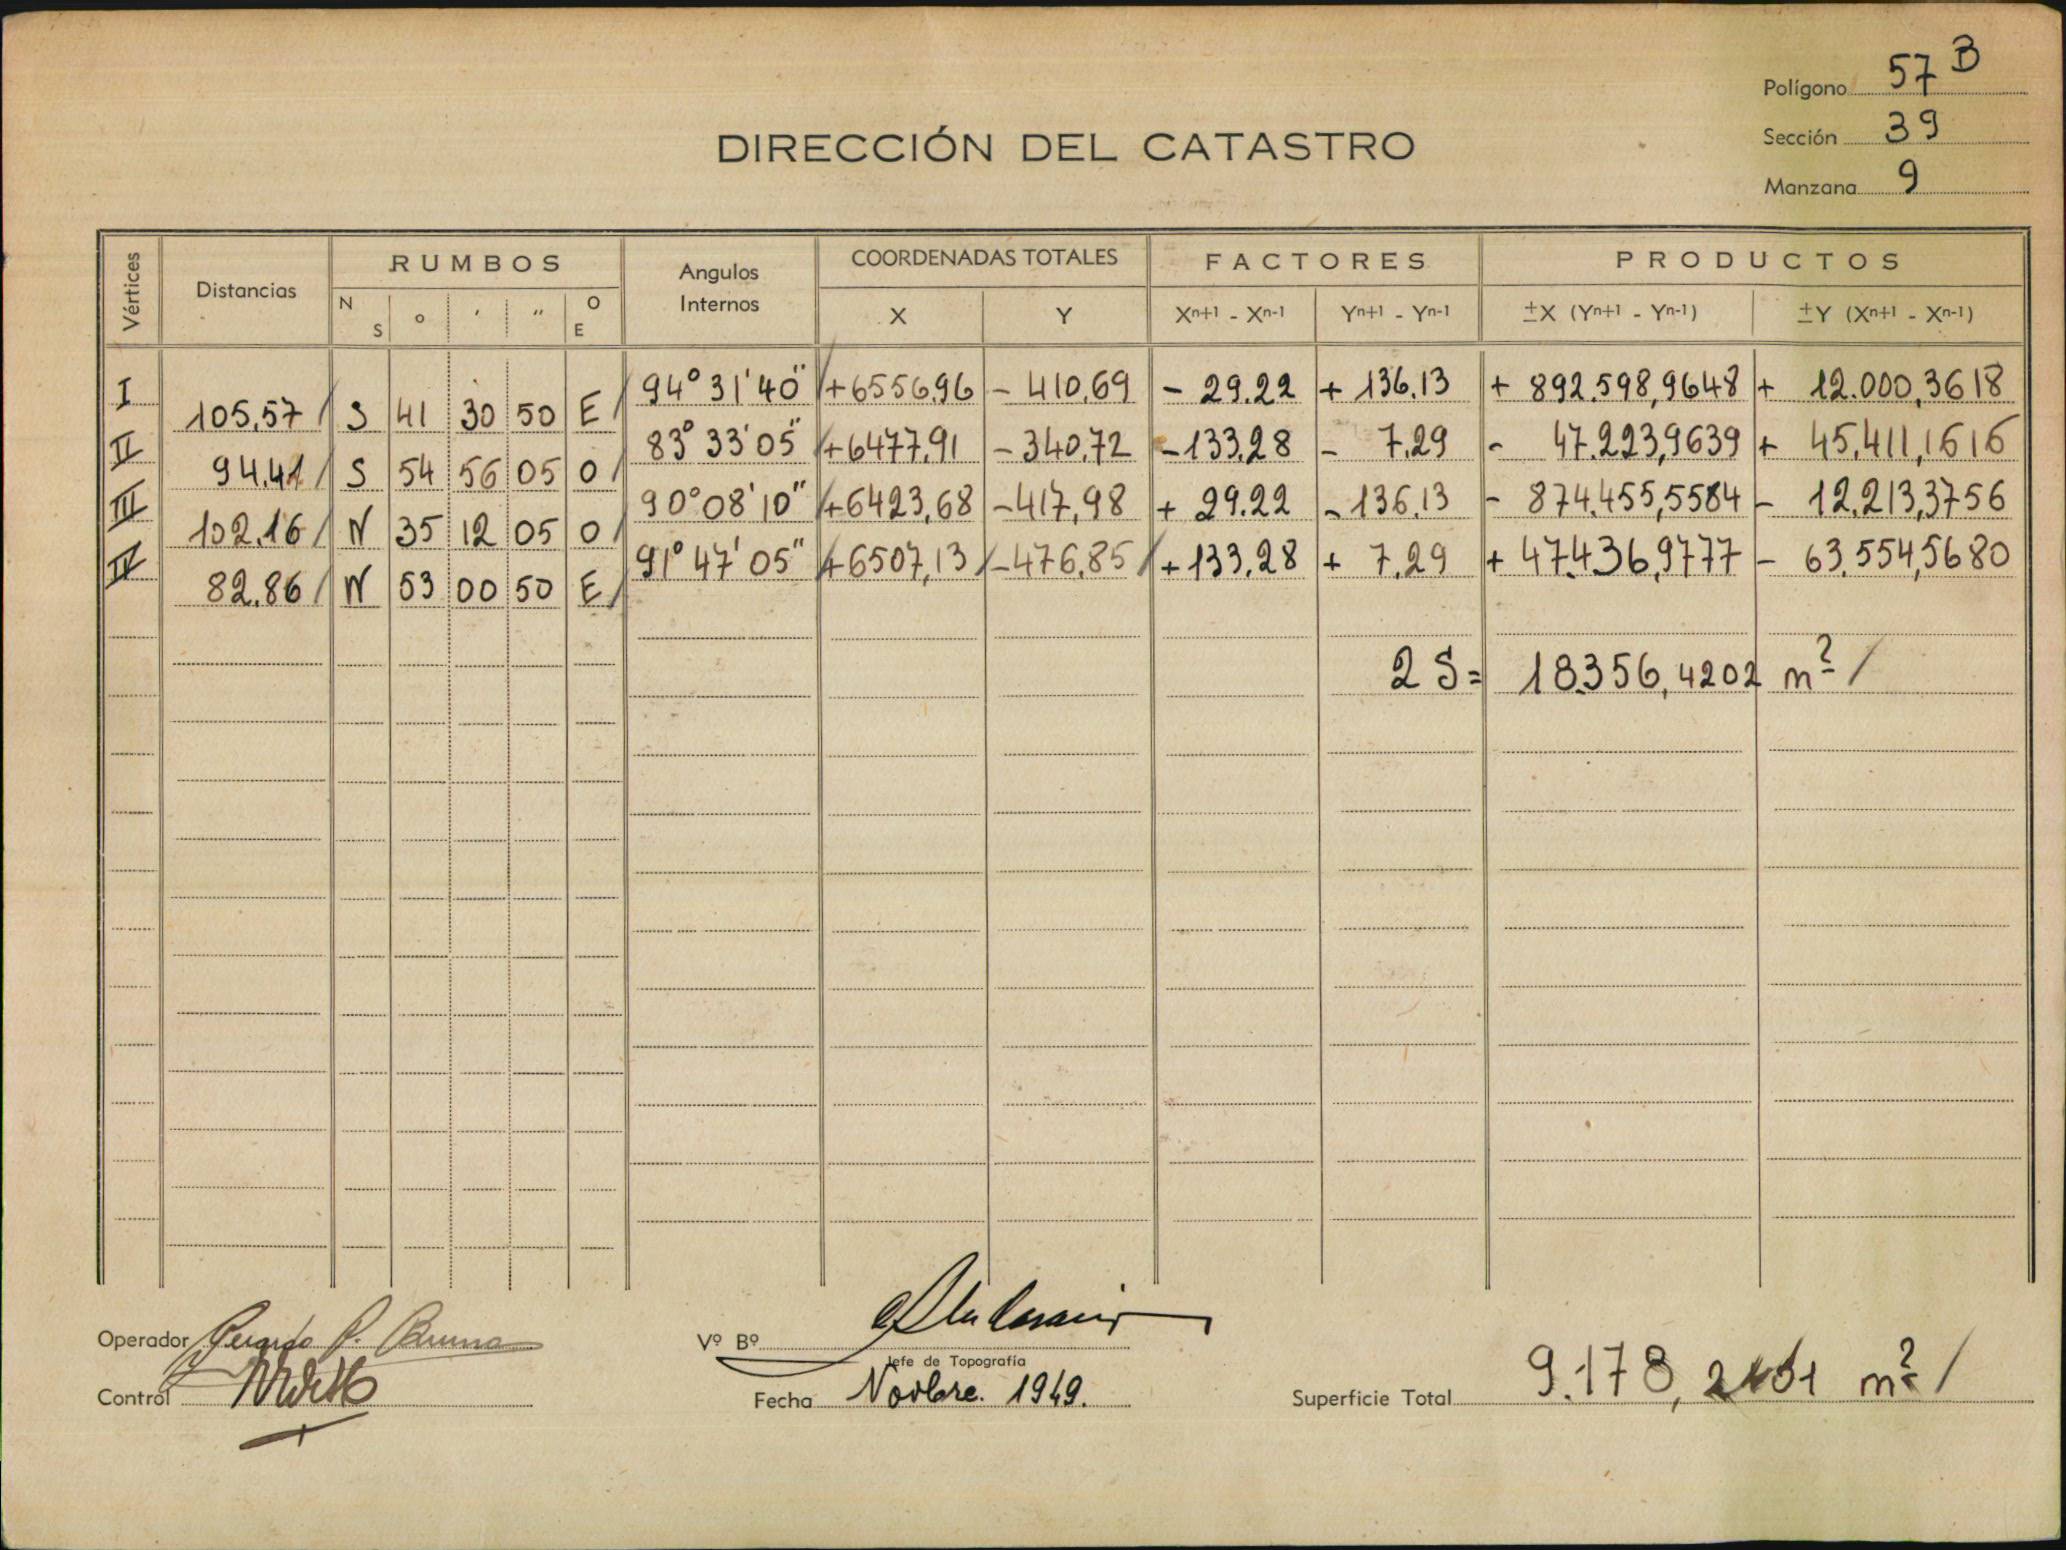 Polígono 57 B
Sección 39
Manzana 9
DIRECCIÓN DEL CATASTRO
Vértices Distancias RUMBOS Angulos Internos COORDENADAS TOTALES FACTORES PRODUCTOS
N S o ′ ″ O E X Y Xn+1 - Xn-1 Yn+1 - Yn-1 ±X (Yn+1 - Yn-1) ±Y (Xn+1 - Xn-1)
I 94° 31' 40" +6556,96 - 410,69 - 29.22 + 136.13 + 892.598,9648 + 12.000,3618
105,57 S 41 30 50 E
II 83° 33' 05" +6477,91 - 340,72 -133,28 - 7,29 - 47.223,9639 + 45.411,1616
94,41 S 54 56 05 O
III 90° 08' 10" +6423,68 -417,98 + 29.22 -136,13 - 874.455,5584 - 12.213,3756
102.16 N 35 12 05 O
IV 91° 47' 05" +6507,13 -476,85 +133,28 + 7,29 + 47.436,9777 - 63.554,5680
82.86 N 53 00 50 E
2 S= 18.356,4202 m²
Operador Gerardo P.
Vº Bº
Jefe de Topografía
Control
Fecha Novbre. 1949.
Superficie Total 9.178, m²